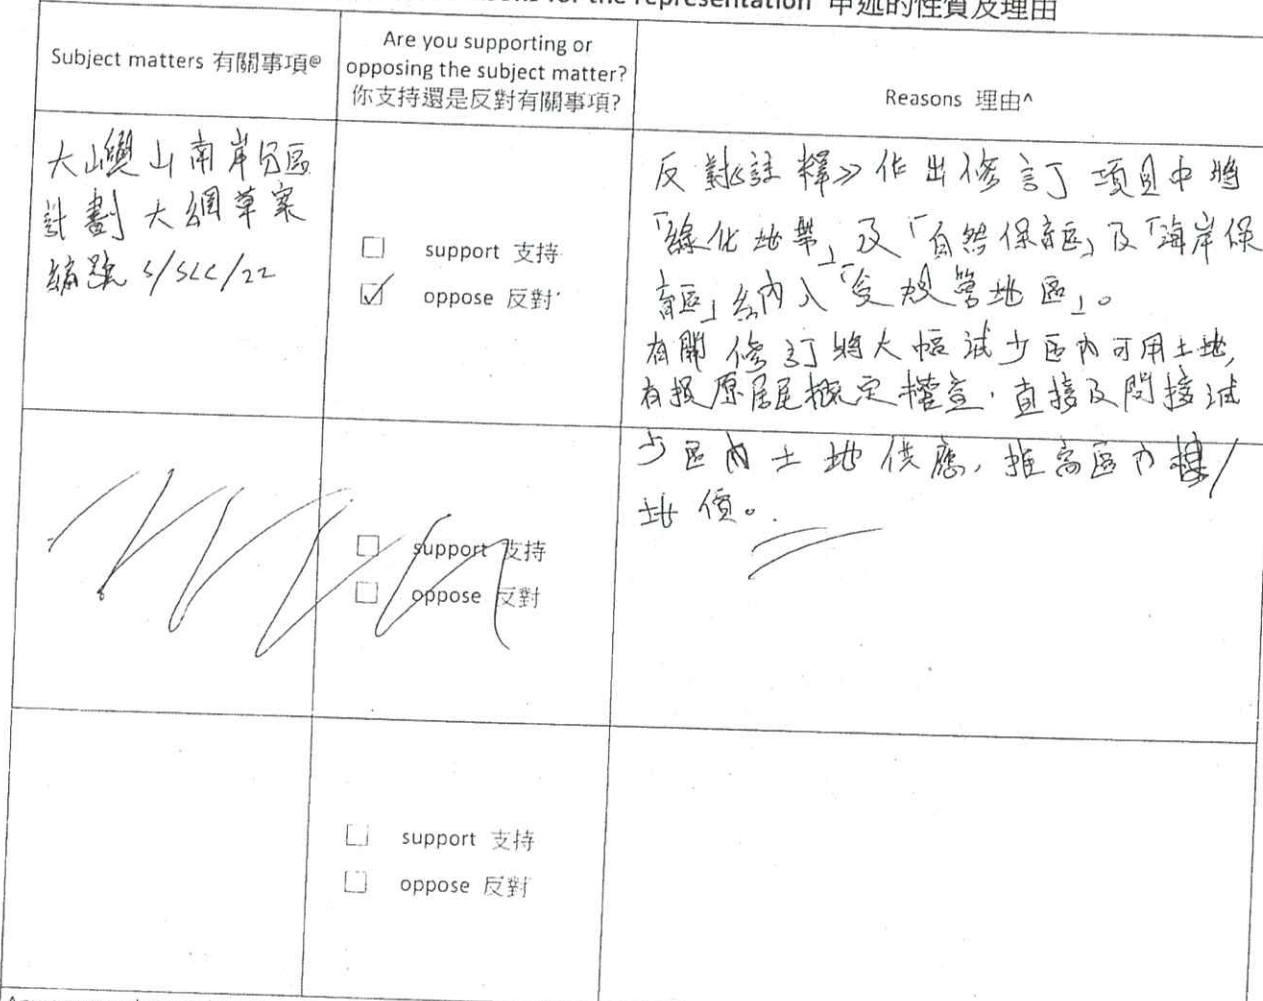 for the representation 申述的性質及理由
Subject matters 有關事項@
Are you supporting or
opposing the subject matter?
你支持還是反對有關事項?
Reasons 理由^
大嶼山南岸分區
計劃大綱草案
編號 S/SLC/22
support 支持
oppose 反對
反對《註釋》作出修訂項目中將
「綠化地帶」及「自然保育區」及「海岸保
育區」納入「受規管地區」。
有關修訂將大幅減少區內可用土地,
有損原居民既定權益,直接及間接減
少區內土地供應,推高區內樓/
地價。
support 支持
oppose 反對
support 支持
oppose 反對